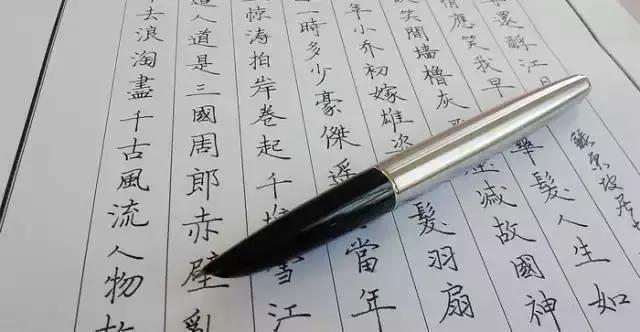 去浪淘盡千古風流人物故
人道是三國周郎赤壁亂
惊涛拍岸卷起千堆雪江
一時多少豪傑遥當年
年小乔初嫁雄髮羽扇
笑間墙櫓灰滅故國神
情應笑我早華髮人生如
還酹江月